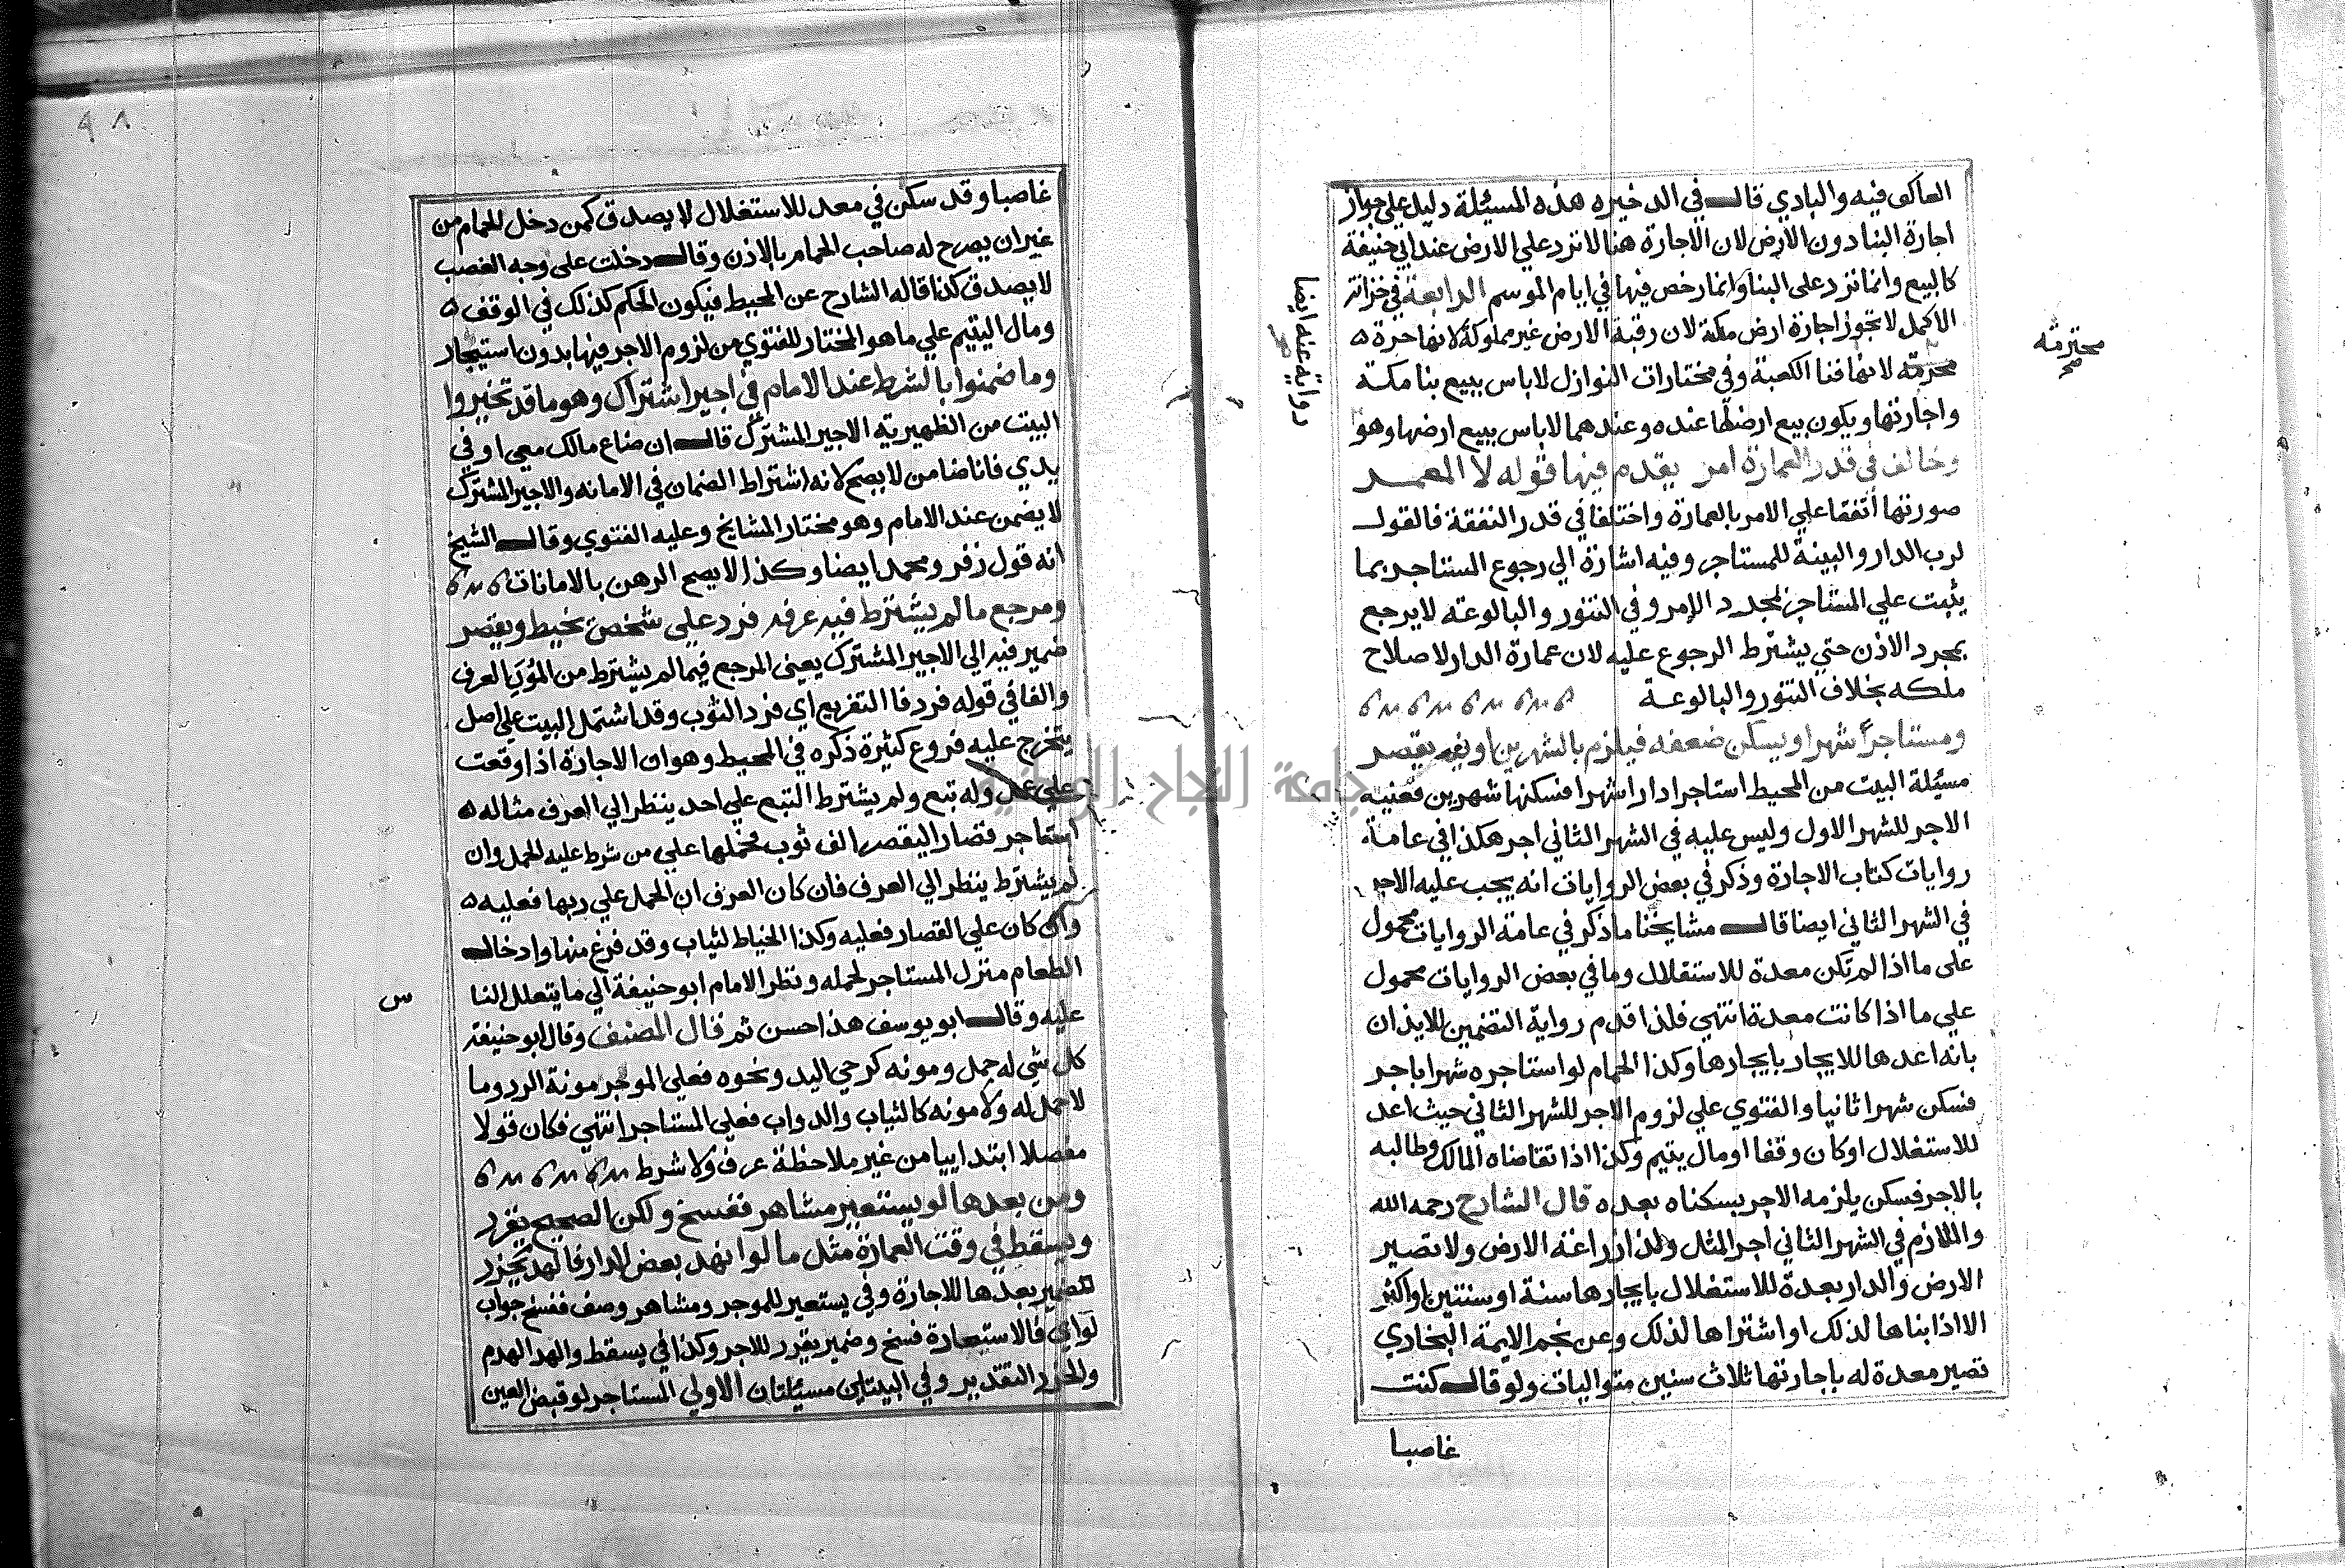 العاكف فيه والبادي قال في الدخيره هذه المسئلة دليل علي جواز
اجارة البنا دون الارض لان الاجارة هنا لا ترد علي الارض عند ابي حنيفة
كالبيع وانما ترد على البنا وانما رخص فيها في ايام الموسم الرابعة في خزانة
الاكمل لا تجوز اجارة ارض مكة لان رقبة الارض غير مملوكة لانها حرة ه
محترمة لانها فنا الكعبة وفي مختارات النوازل لا باس ببيع بنا مكة
واجارتها ويكون بيع ارضها عنده وعندهما لا باس ببيع ارضها وهو
رواية عنه ايضا
محترمة
صح
وخالف في قدر العمارة امر يقدم فيها قوله لا المعمر
صورتها اتفقا علي الامر بالعمارة واختلفا في قدر النفقة فالقول
لرب الدار والبينة للمستاجر وفيه اشارة الي رجوع المستاجر بما
يثبت علي المستاجر لمجرد الامر وفي التنور والبالوعة لا يرجع
بمجرد الاذن حتي يشترط الرجوع عليه لان عمارة الدار لاصلاح
ملكه بخلاف التنور والبالوعة
ومستاجرا شهرا ويسكن ضعفه فيلزم بالشهرين او فيه يقصر
مسئلة البيت من المحيط استاجر دارا شهرا فسكنها شهرين فعليه
الاجر للشهر الاول وليس عليه في الشهر الثاني اجر هكذا في عامة
روايات كتاب الاجارة وذكر في بعض الروايات انه يجب عليه الاجر
في الشهر الثاني ايضا قال مشايخنا ما ذكر في عامة الروايات محمول
على ما اذا لم تكن معدة للاستقلال وما في بعض الروايات محمول
علي ما اذا كانت معدة انتهي فلذا قدم رواية التضمين للايذان
بانه اعدها للايجار بايجارها وكذا الحمام لو استاجره شهرا باجر
فسكن شهرا ثانيا والفتوي علي لزوم الاجر للشهر الثاني حيث اعد
للاستغلال او كان وقفا او مال يتيم وكذا اذا تقاضاه المالك وطالبه
بالاجر فسكن يلزمه الاجر بسكناه بعده قال الشارح رحمه الله
واللازم في الشهر الثاني اجر المثل وكذا زراعة الارض ولا تصير
الارض والدار بعدة للاستغلال بايجارها سنة او سنتين او اكثر
الا اذا بناها لذلك او اشتراها لذلك وعن نجم الايمة البخاري
تصير معدة له باجارتها ثلاث سنين متواليات ولو قال كنت
غاصبا
غاصبا وقد سكن في معد للاستغلال لا يصدق كمن دخل الحمام من
غير ان يصرح له صاحب الحمام بالاذن وقال دخلت على وجه الغصب
لا يصدق كذا قاله الشارح عن المحيط فيكون الحكم كذلك في الوقف ه
ومال اليتيم علي ما هو المختار للفتوي من لزوم الاجر فيها بدون استيجار
وما ضمنوا بالشرط عند الامام في اجير اشتراك وهو ما قد تخيروا
البيت من الظهيرية الاجير المشترك قال ان ضاع مالك معي او في
يدي فانا ضامن لا يصح لانه اشتراط الضمان في الامانه والاجير المشترك
لا يضمن عند الامام وهو مختار المشايخ وعليه الفتوي وقال الشيخ
انه قول زفر ومحمد ايضا وكذا لا يصح الرهن بالامانات
ومرجع ما لم يشترط فيه عرفه فرد علي شخص يخيط ويقصر
ضمير فيه الي الاجير المشترك يعني المرجع فيما لم يشترط من المؤن العرف
والفا في قوله فرد فا التفريع اي فرد الثوب وقد اشتمل البيت علي اصل
يتخرج عليه فروع كثيرة ذكره في المحيط وهو ان الاجارة اذا وقعت
علي عمل وله تبع ولم يشترط التبع علي احد ينظر الي العرف مثاله ه
استاجر قصارا ليقصر الف ثوب فحملها علي من شرط عليه الحمل وان
لم يشترط ينظر الي العرف فان كان العرف ان الحمل علي ربها فعليه ه
وان كان علي القصار فعليه وكذا الخياط لثياب وقد فرغ منها وادخال
الطعام منزل المستاجر لحمله ونظر الامام ابو حنيفة الي ما يتعلل النا
س
عليه وقال ابو يوسف هذا احسن ثم قال المصنف وقال ابو حنيفة
كل شي له حمل ومونه كرحي اليد ونحوه فعلي الموجر مونة الرد وما
لا حمل له ولا مونه كالثياب والدواب فعلي المستاجر انتهي فكان قولا
مفصلا ابتداييا من غير ملاحظة عرف ولا شرط
ومن بعدها لو يستعير مشاهر ففسخ ولكن الصحيح يقرر
ويسقط في وقت العمارة مثل ما لو انهد بعض الدار فالهد يحزر
ضمير بعدها للاجارة وفي يستعير للموجر ومشاهر وصف ففسخ جواب
لو اي فالاستعارة فسخ وضمير يقرر للاجر وكذا في يسقط والهد الهدم
والحزر التقدير وفي البيتين مسئلتان الاولي المستاجر لو قبض العين
جامعة النجاح الوطنية